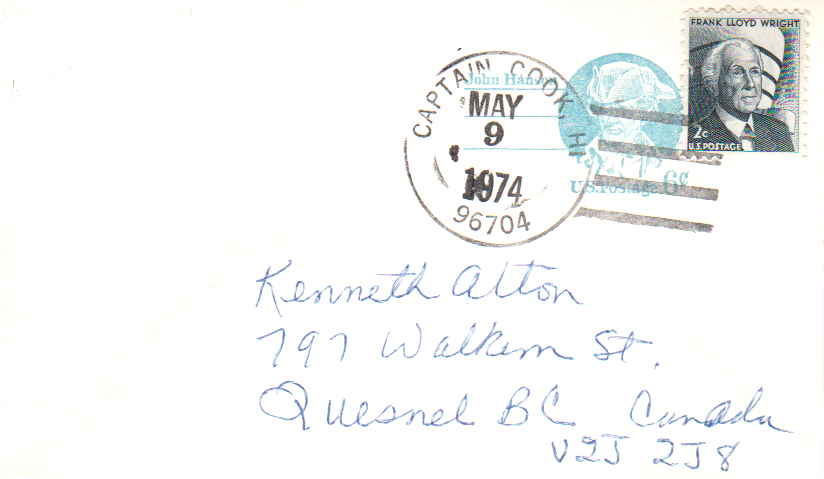 FRANK LLOYD WRIGHT
2c
U.S. POSTAGE
John Hanson
U.S. Postage 6¢
CAPTAIN COOK, HI
MAY
9
1974
96704
Kenneth Alton
797 Walkem St.
Quesnel BC Canada
V2J 2J8